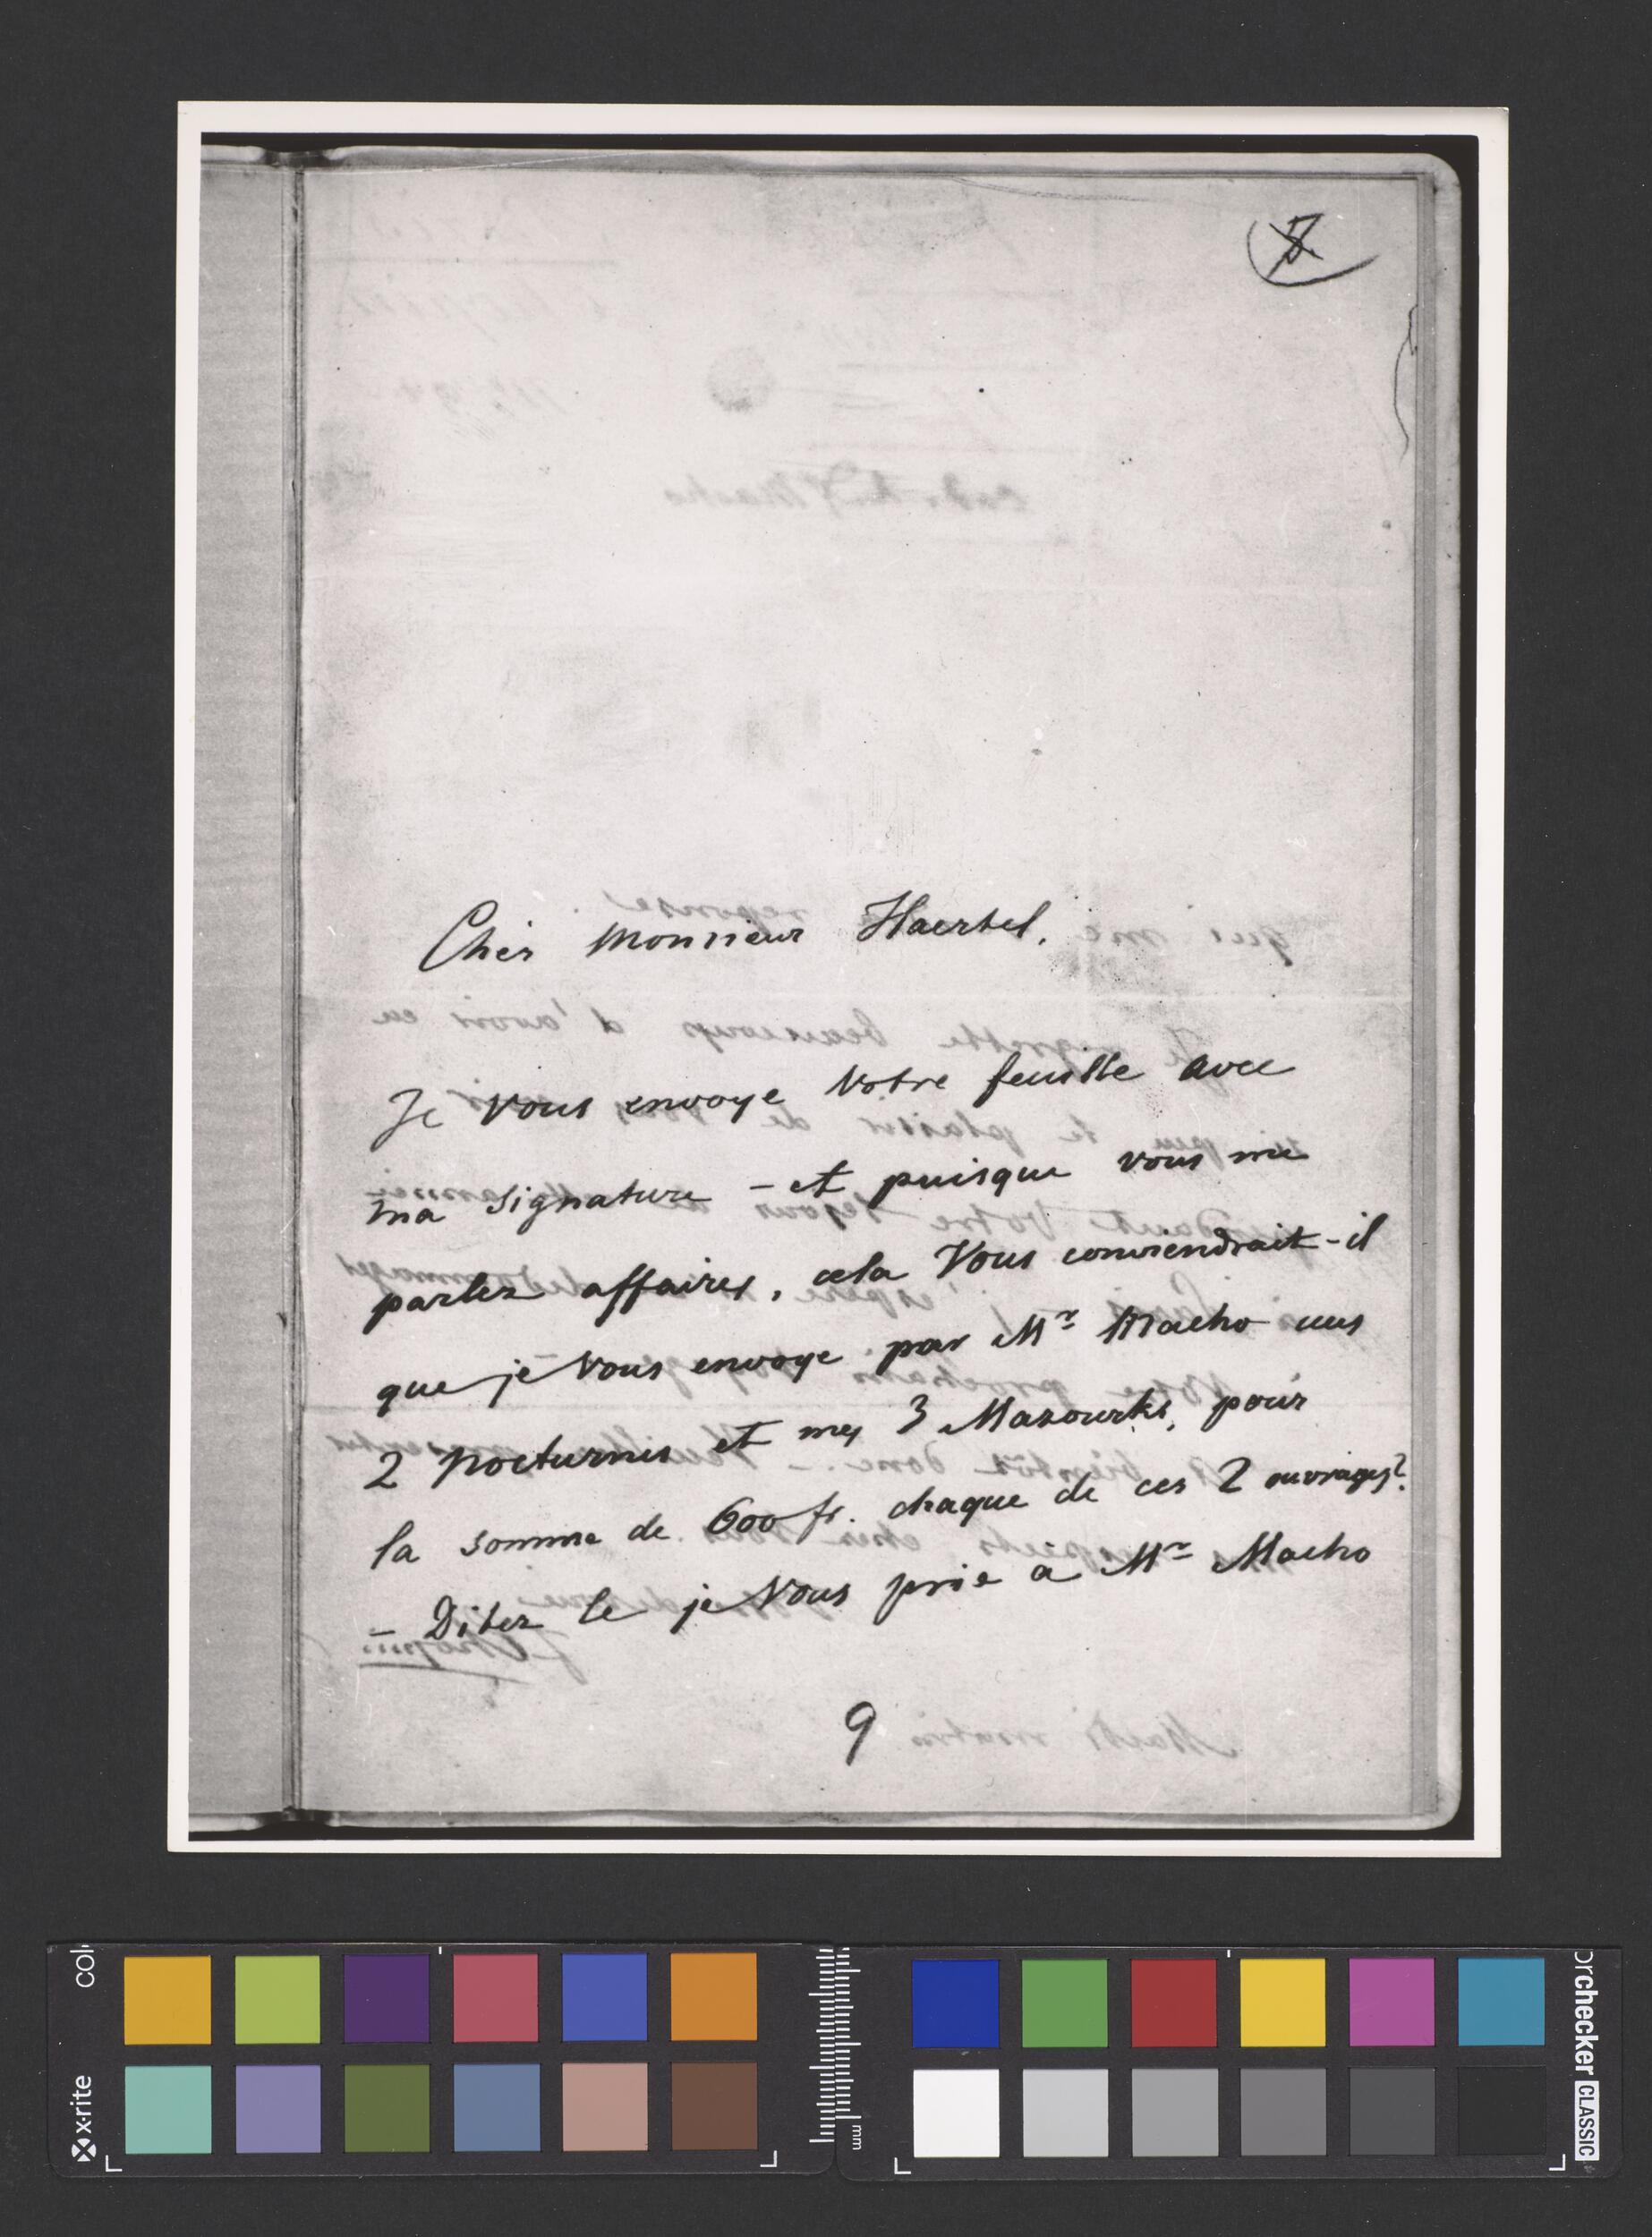 Cher Monsieur Haertel.
Je Vous envoye Votre feuille avec
ma signature – et puisque vous me
parlez affaires, cela Vous conviendrait-il
que je Vous envoye par Mr Macho mes
2 Nocturnes et mes 3 Mazourks, pour
la somme de 600 fr. chaque de ces 2 ouvrages?
– Dites le je Vous prie à Mr Macho
9
colorchecker CLASSIC
x-rite
mm